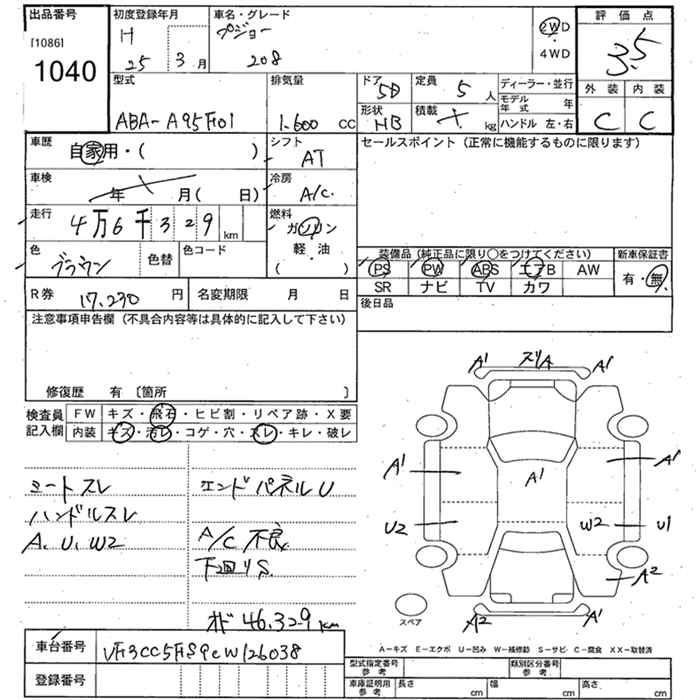 出品番号 初度登録年月 車名・グレード 評価点
[1086] H プジョー 2WD 3.5
1040 25 3月 208 4WD
型式 排気量 ドア 5D 定員 5人 ディーラー・並行 外装 内装
ABA-A95F01 1.600cc 形状 HB 積載 kg モデル年式 年 C C
ハンドル 左・右
車歴 自家用・( ) シフト AT セールスポイント (正常に機能するものに限ります)
車検 年 月( 日) 冷房 A/C
走行 4万6千329km 燃料 ガソリン
軽・油
( )
色 ブラウン 色替 色コード
装備品 (純正品に限り○をつけてください) 新車保証書
PS PW ABS エアB AW 有・無
SR ナビ TV カワ
R券 17,230円 名変期限 月 日 後日品
注意事項申告欄 (不具合内容等は具体的に記入して下さい)
修復歴 有 〔箇所 〕
検査員 FW キズ・飛石・ヒビ割・リペア跡・X要
記入欄 内装 キズ・汚レ・コゲ・穴・スレ・キレ・破レ
シートスレ エンドパネルU
ハンドルスレ
A、U、W2 A/C不良
下回りS
オド46.329km
A1 スリA A1
A1 A1 A1
U2 W2 U1
A2
A2 A1
スペア
A-キズ E-エクボ U-凹み W-補修跡 S-サビ C-腐食 XX-取替済
車台番号 VF3CC5FS9CW126038
登録番号
型式指定番号 参考 類別区分番号 参考
車庫証明用 参考 長さ cm 幅 cm 高さ cm